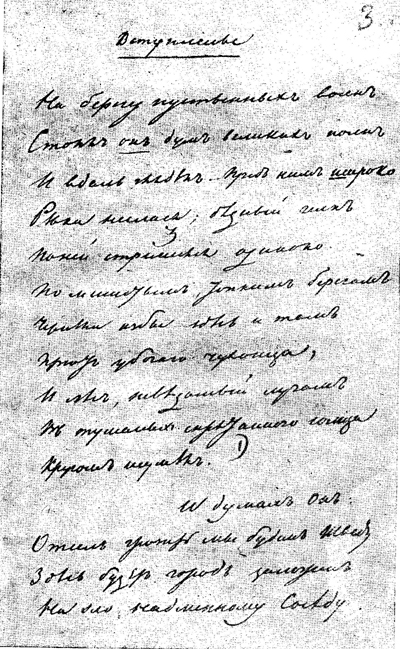 3
Вступленье
На берегу пустынныхъ волнъ
Стоялъ онъ думъ великихъ полнъ
И вдаль глядѣлъ. Предъ нимъ широко
Рѣка неслася; бѣдный челнъ
По ней стремился одиноко.
По мшистымъ, топкимъ берегамъ
Чернѣли избы здѣсь и тамъ
Приютъ убогаго чухонца;
И лѣсъ, невѣдомый лучамъ
Въ туманѣ спрятаннаго солнца
Кругомъ шумѣлъ. 1)
И думалъ Онъ:
Отсель грозить мы будемъ Шведу
Здѣсь будетъ городъ заложенъ
На зло надменному Сосѣду.